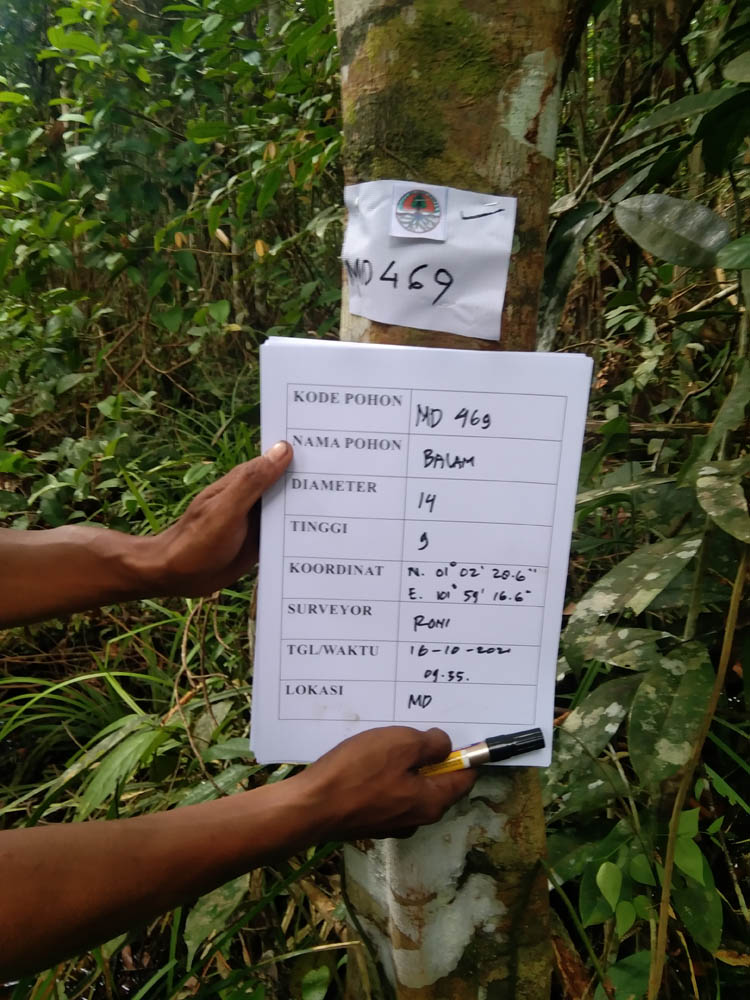 MD 469
KODE POHON MD 469
NAMA POHON BALAM
DIAMETER 14
TINGGI 9
KOORDINAT N. 01° 02' 28.6"
E. 101° 59' 16.6"
SURVEYOR RONI
TGL/WAKTU 16-10-2021
09.35.
LOKASI MD